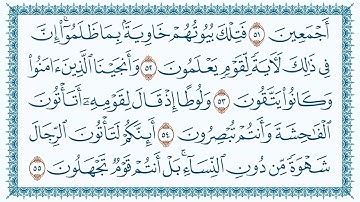 أَجْمَعِينَ ٥١ فَتِلْكَ بُيُوتُهُمْ خَاوِيَةًۢ بِمَا ظَلَمُوٓا۟ ۗ إِنَّ
فِى ذَٰلِكَ لَـَٔايَةً لِّقَوْمٍ يَعْلَمُونَ ٥٢ وَأَنجَيْنَا ٱلَّذِينَ ءَامَنُوا۟
وَكَانُوا۟ يَتَّقُونَ ٥٣ وَلُوطًا إِذْ قَالَ لِقَوْمِهِۦٓ أَتَأْتُونَ
ٱلْفَـٰحِشَةَ وَأَنتُمْ تُبْصِرُونَ ٥٤ أَئِنَّكُمْ لَتَأْتُونَ ٱلرِّجَالَ
شَهْوَةً مِّن دُونِ ٱلنِّسَآءِ ۚ بَلْ أَنتُمْ قَوْمٌ تَجْهَلُونَ ٥٥